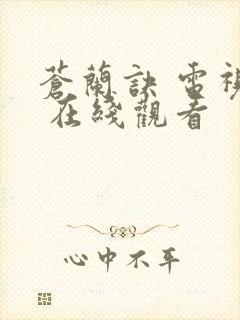 蒼蘭訣 電視
在綫觀看
心中不平